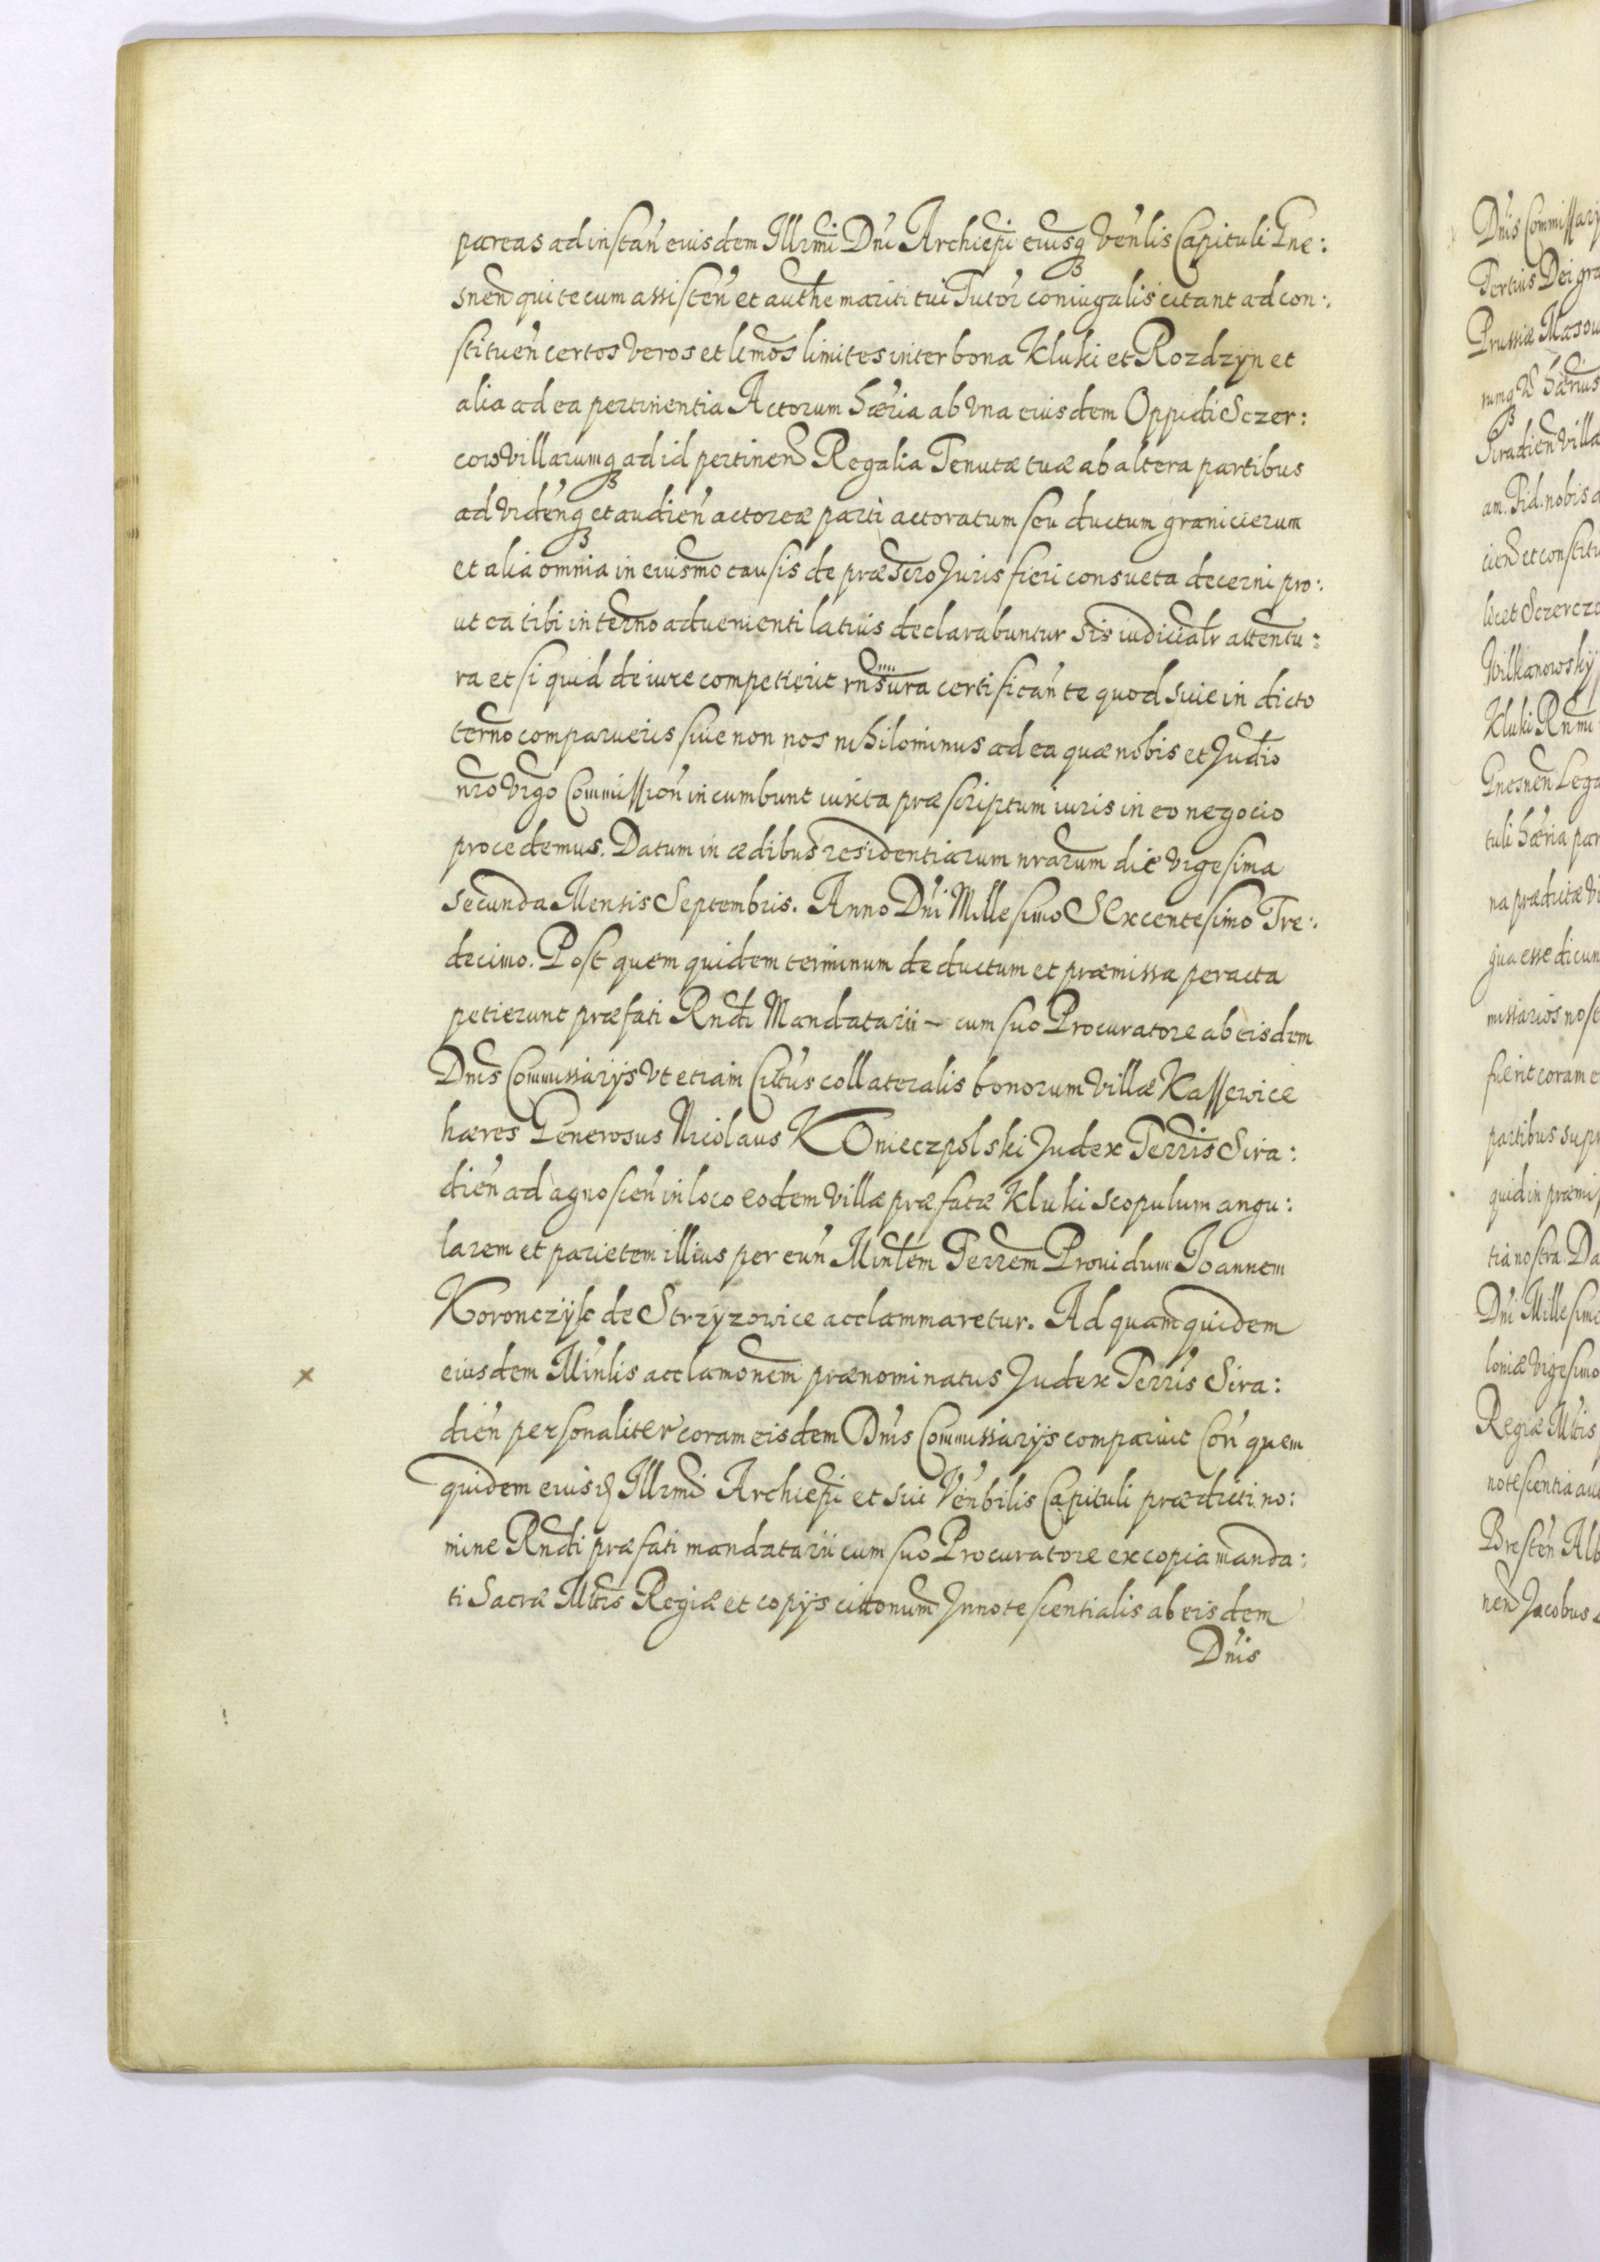 pareas ad instan̄ eiusdem Illrmi Dn̄i Archiep̄i eiusq3 Ven̄lis Capituli Gne:
snen̄ qui tecum assisten̄ et autħe mariti tui Tutor̄ coniugalis citant ad con:
stituen̄ certos veros et l̄imos limites inter bona Kluki et Rozdzyn et
alia ad ea pertinentia Actorum hǣria ab vna eiusdem Oppidi Sczer:
cow villarumq3 ad id pertinen̄ Regalia Tenutæ tuæ ab altera partibus
ad viden̄q3 et audien̄ actoreæ parti actoratum seu ductum granicierum
et alia omnia in eiusmo causis de præscr̄o Juris fieri consueta decerni pro:
ut ea tibi in ter̄no aduenienti latius declarabuntur sis iudicialr̄ attentu:
ra et si quid de iure competierit rn̄sura certifican̄ te quod siue in dicto
ter̄no comparueris siue non nos nihilominus ad ea quæ nobis et Judīo
nr̄o vigo Commission̄ incumbunt iuxta præscriptum iuris in eo negocio
procedemus. Datum in ædibus residentiarum nrarum die vigesima
secunda Mensis Septembris. Anno Dn̄i Millesimo SExcentesimo Tre:
decimo. Post quem quidem terminum deductum et præmissa peracta
petierunt præfati Rn̄di Mandatarii – cum suo Procuratore ab eisdem
Dn̄is Commissarijs vt etiam Cit̄us collateralis bonorum villæ Kassewice
hæres Generosus Nicolaus KOnieczpolski Judex Terr̄is Sira:
dien̄ ad agnoscen̄ in loco eodem villæ præfatæ Kluki scopulum angu:
larem et parietem illius per eun̄ Minl̄em Terr̄em Prouidum Joannem
Koronczyk de Strzyzowice acclammaretur. Ad quam quidem
eiusdem Min̄lis acclamōnem prænominatus Judex Terr̄is Sira:
dien̄ personaliter coram eisdem Dn̄is Commissarijs comparuit Con̄ quem
quidem eiusd Illrmi Archiep̄i et sui Ven̄bilis Capituli prædicti no:
mine Rn̄di præfati mandatarii cum suo Procuratore ex copia manda:
ti Sacræ Mt̄is Regiæ et copijs citōnum Innotescentialis ab eisdem
Dn̄is
Dn̄is Commissarij
Tertius Dei gra
Prussiæ Masou
rumq3
Siradien̄ villa
am. Fid. nobis
cien̄ et constitu
licet Sczercz
Wilkanowskij
Kluki Rn̄mi
Gnesnen̄ Lega
tuli hǣria par
na prædictæ vi
gua esse dicun
missarios nost
fierit coram e
partibus sup
quid in præmi
tia nostra. Da
Dn̄i Millesimo
loniæ vigesimo
Regiæ Mt̄is
notescentia au
Bresten̄ Alb
nen̄ Jacobus